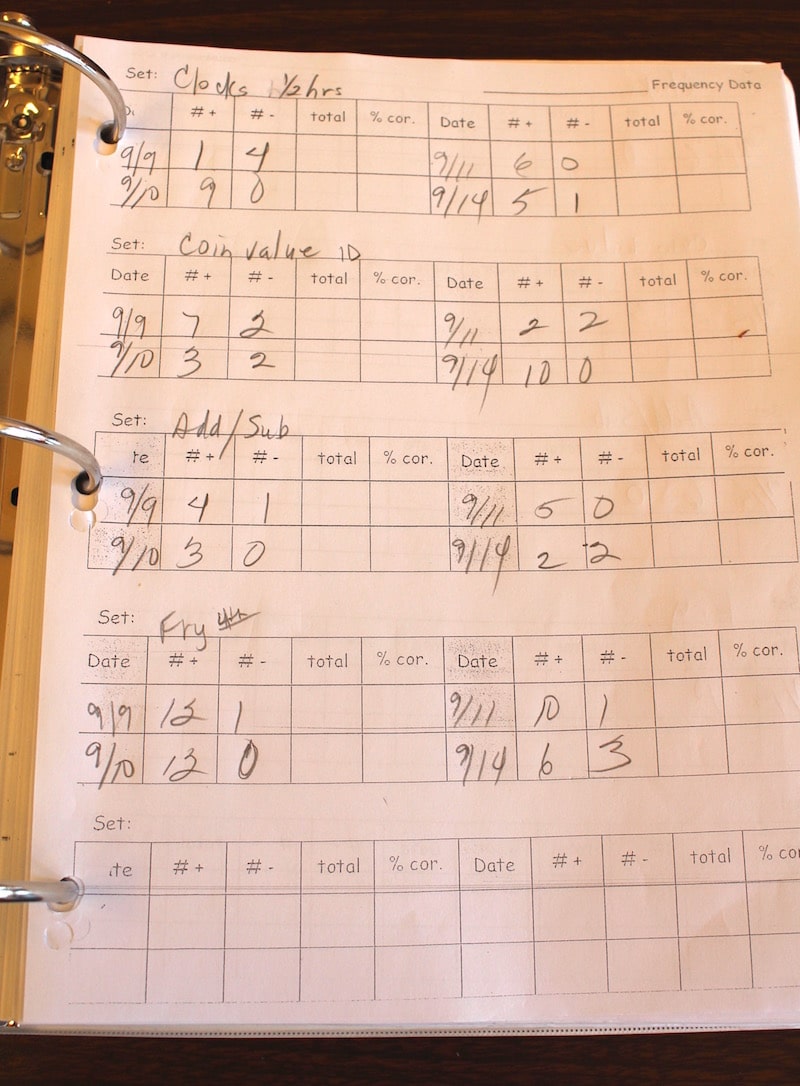 Set: Clocks 1/2 hrs Frequency Data
# + # - total % cor. Date # + # - total % cor.
9/9 1 4 9/11 6 0
9/10 9 0 9/14 5 1
Set: Coin value ID
Date # + # - total % cor. Date # + # - total % cor.
9/9 7 2 9/11 2 2
9/10 3 2 9/14 10 0
Set: Add/Sub
te # + # - total % cor. Date # + # - total % cor.
9/9 4 1 9/11 5 0
9/10 3 0 9/14 2 2
Set: Fry
Date # + # - total % cor. Date # + # - total % cor.
9/9 1 9/11 10 1
9/10 0 9/14 6 3
Set:
te # + # - total % cor. Date # + # - total % co